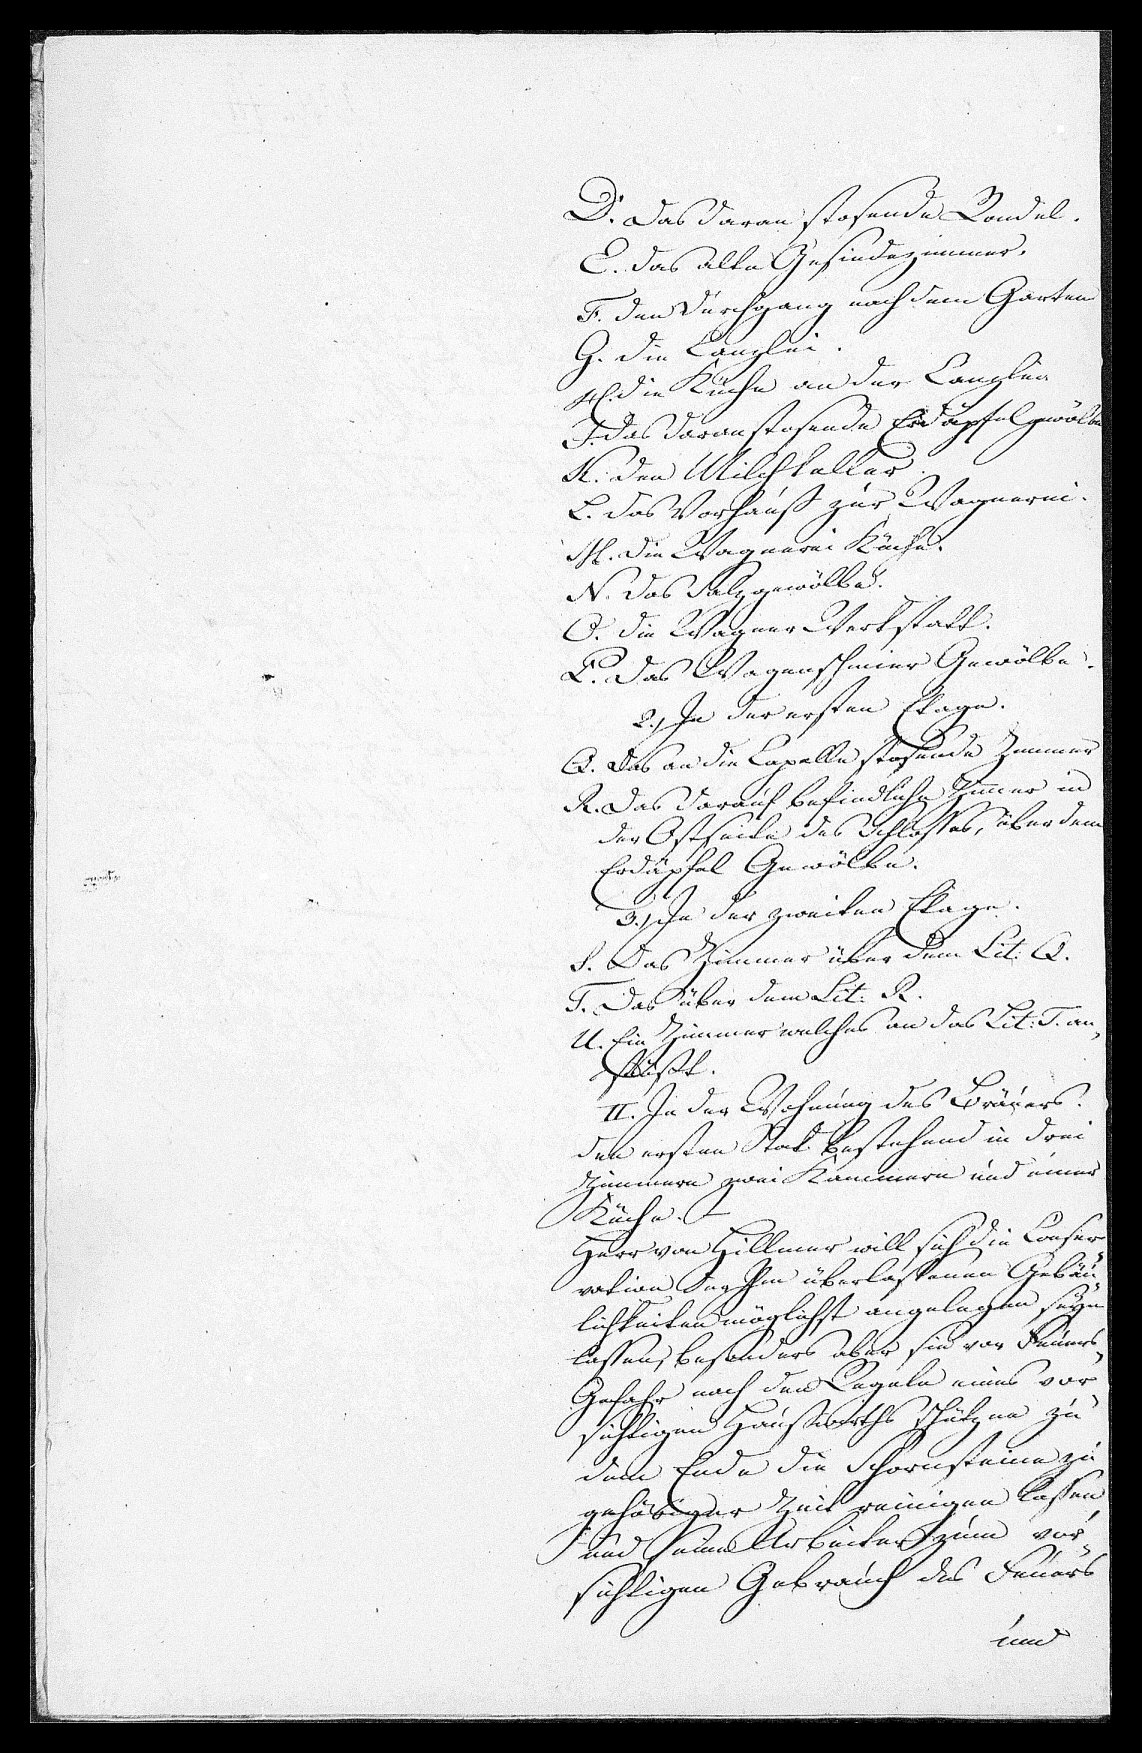 D. das daran stosende Rondel.
E. das alte Gesindezimmer.
F. den Durchgang nach dem Garten
G. die Canzlei.
H. die Küche an der Canzlei
J. das daranstosende Erdäpfelgewölbe
K. den Milchkeller.
L. das Vorhauß zur Wagnerei.
M. die Wagnerei Küche.
N. das Salzgewölbe.
O. die Wagner Werkstatt.
P. das Wagenschmier Gewölbe.
2., In der ersten Etage.
Q. Das an die Capelle stosende Zimmer
R. Das darauf befindliche Zimer in
der Ostseite des Schlosses, über dem
Erdäpfel Gewölbe.
3., In der zweiten Etage.
S. Das Zimmer über dem Lit: Q.
T. Das über dem Lit: R.
U. Ein Zimmer welches an das Lit: T. an,
stößt.
II. In der Wohnung des Bräuers.
den ersten Stock bestehend in drei
Zimmern zwei Kammern und einer
Küche. –
Herr von Hillmer will sich die Conser
vation der Ihm überlassenen Gebäu„
lichkeiten möglichst angelegen seyn
lassen, besonders aber sie vor Feuers„
Gefahr nach den Regeln eines vor
sichtigen Haußwirths schützen zu
dem Ende die Schornsteine zu
gehöriger Zeit reinigen lassen
und seine Arbeiter zum vor„
sichtigen Gebrauch des Feuers
und